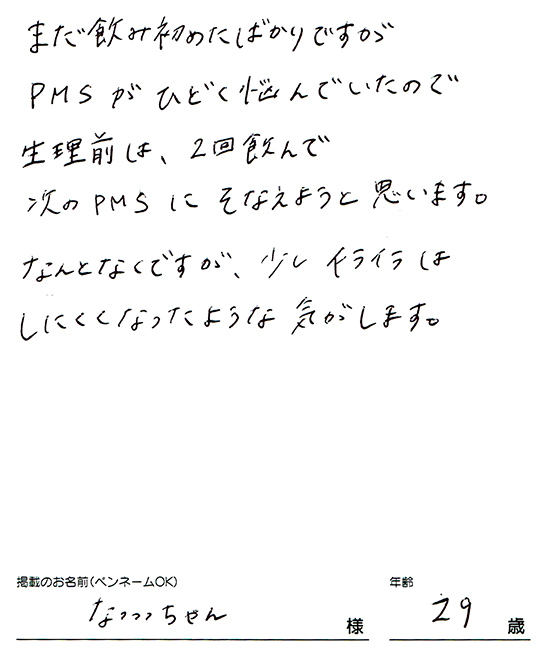 まだ飲み初めたばかりですが
PMSがひどく悩んでいたので
生理前は、2回飲んで
次のPMSにそなえようと思います。
なんとなくですが、少しイライラは
しにくくなったような気がします。
掲載のお名前(ペンネームOK)
なっっちゃん 様
年齢
29 歳